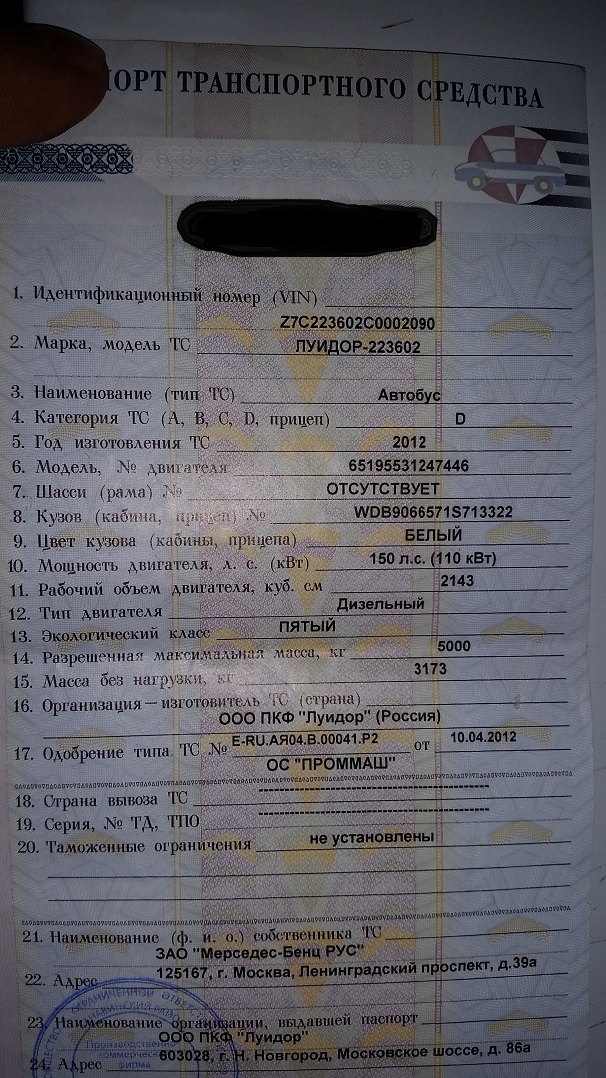 ПОРТ ТРАНСПОРТНОГО СРЕДСТВА
1. Идентификационный номер (VIN)
Z7C223602C0002090
2. Марка, модель ТС ЛУИДОР-223602
3. Наименование (тип ТС) Автобус
4. Категория ТС (A, B, C, D, прицеп) D
5. Год изготовления ТС 2012
6. Модель, № двигателя 65195531247446
7. Шасси (рама) № ОТСУТСТВУЕТ
8. Кузов (кабина, прицеп) № WDB9066571S713322
9. Цвет кузова (кабины, прицепа) БЕЛЫЙ
10. Мощность двигателя, л. с. (кВт) 150 л.с. (110 кВт)
11. Рабочий объем двигателя, куб. см 2143
12. Тип двигателя Дизельный
13. Экологический класс ПЯТЫЙ
14. Разрешенная максимальная масса, кг 5000
15. Масса без нагрузки, кг 3173
16. Организация—изготовитель ТС (страна)
ООО ПКФ "Луидор" (Россия)
17. Одобрение типа ТС № E-RU.АЯ04.B.00041.P2 от 10.04.2012
ОС "ПРОММАШ"
18. Страна вывоза ТС
19. Серия, № ТД, ТПО
20. Таможенные ограничения не установлены
21. Наименование (ф. и. о.) собственника ТС
ЗАО "Мерседес-Бенц РУС"
22. Адрес 125167, г. Москва, Ленинградский проспект, д.39а
23. Наименование организации, выдавшей паспорт
ООО ПКФ "Луидор"
24. Адрес 603028, г. Н. Новгород, Московское шоссе, д. 86а
ОГРАНИЧЕННОЙ
Производственно
коммерческая
фирма